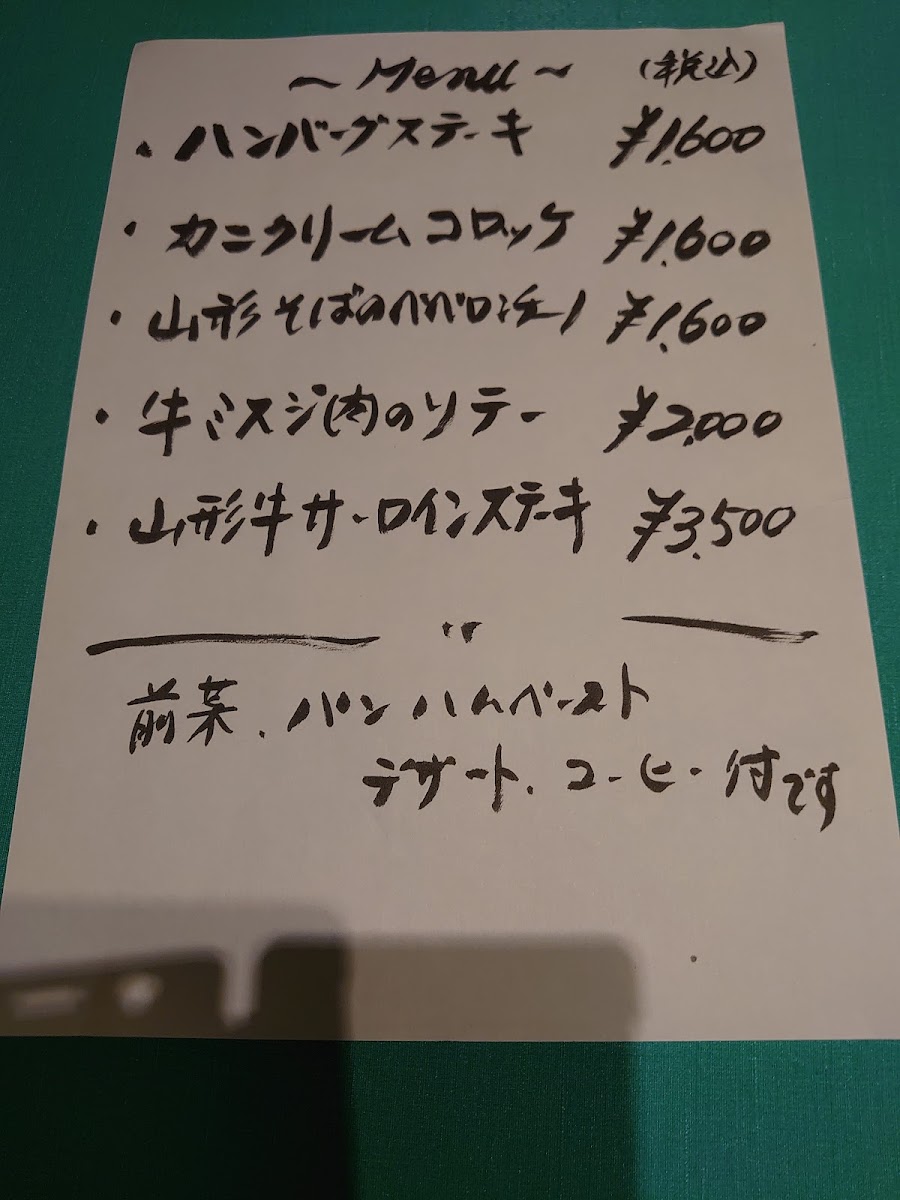 ～Menu～ (税込)
・ハンバーグステーキ ¥1,600
・カニクリームコロッケ ¥1,600
・山形そばのペペロンチーノ ¥1,600
・牛ミスジ肉のソテー ¥2,000
・山形牛サーロインステーキ ¥3,500
前菜、パン ハムペースト
デザート、コーヒー付です